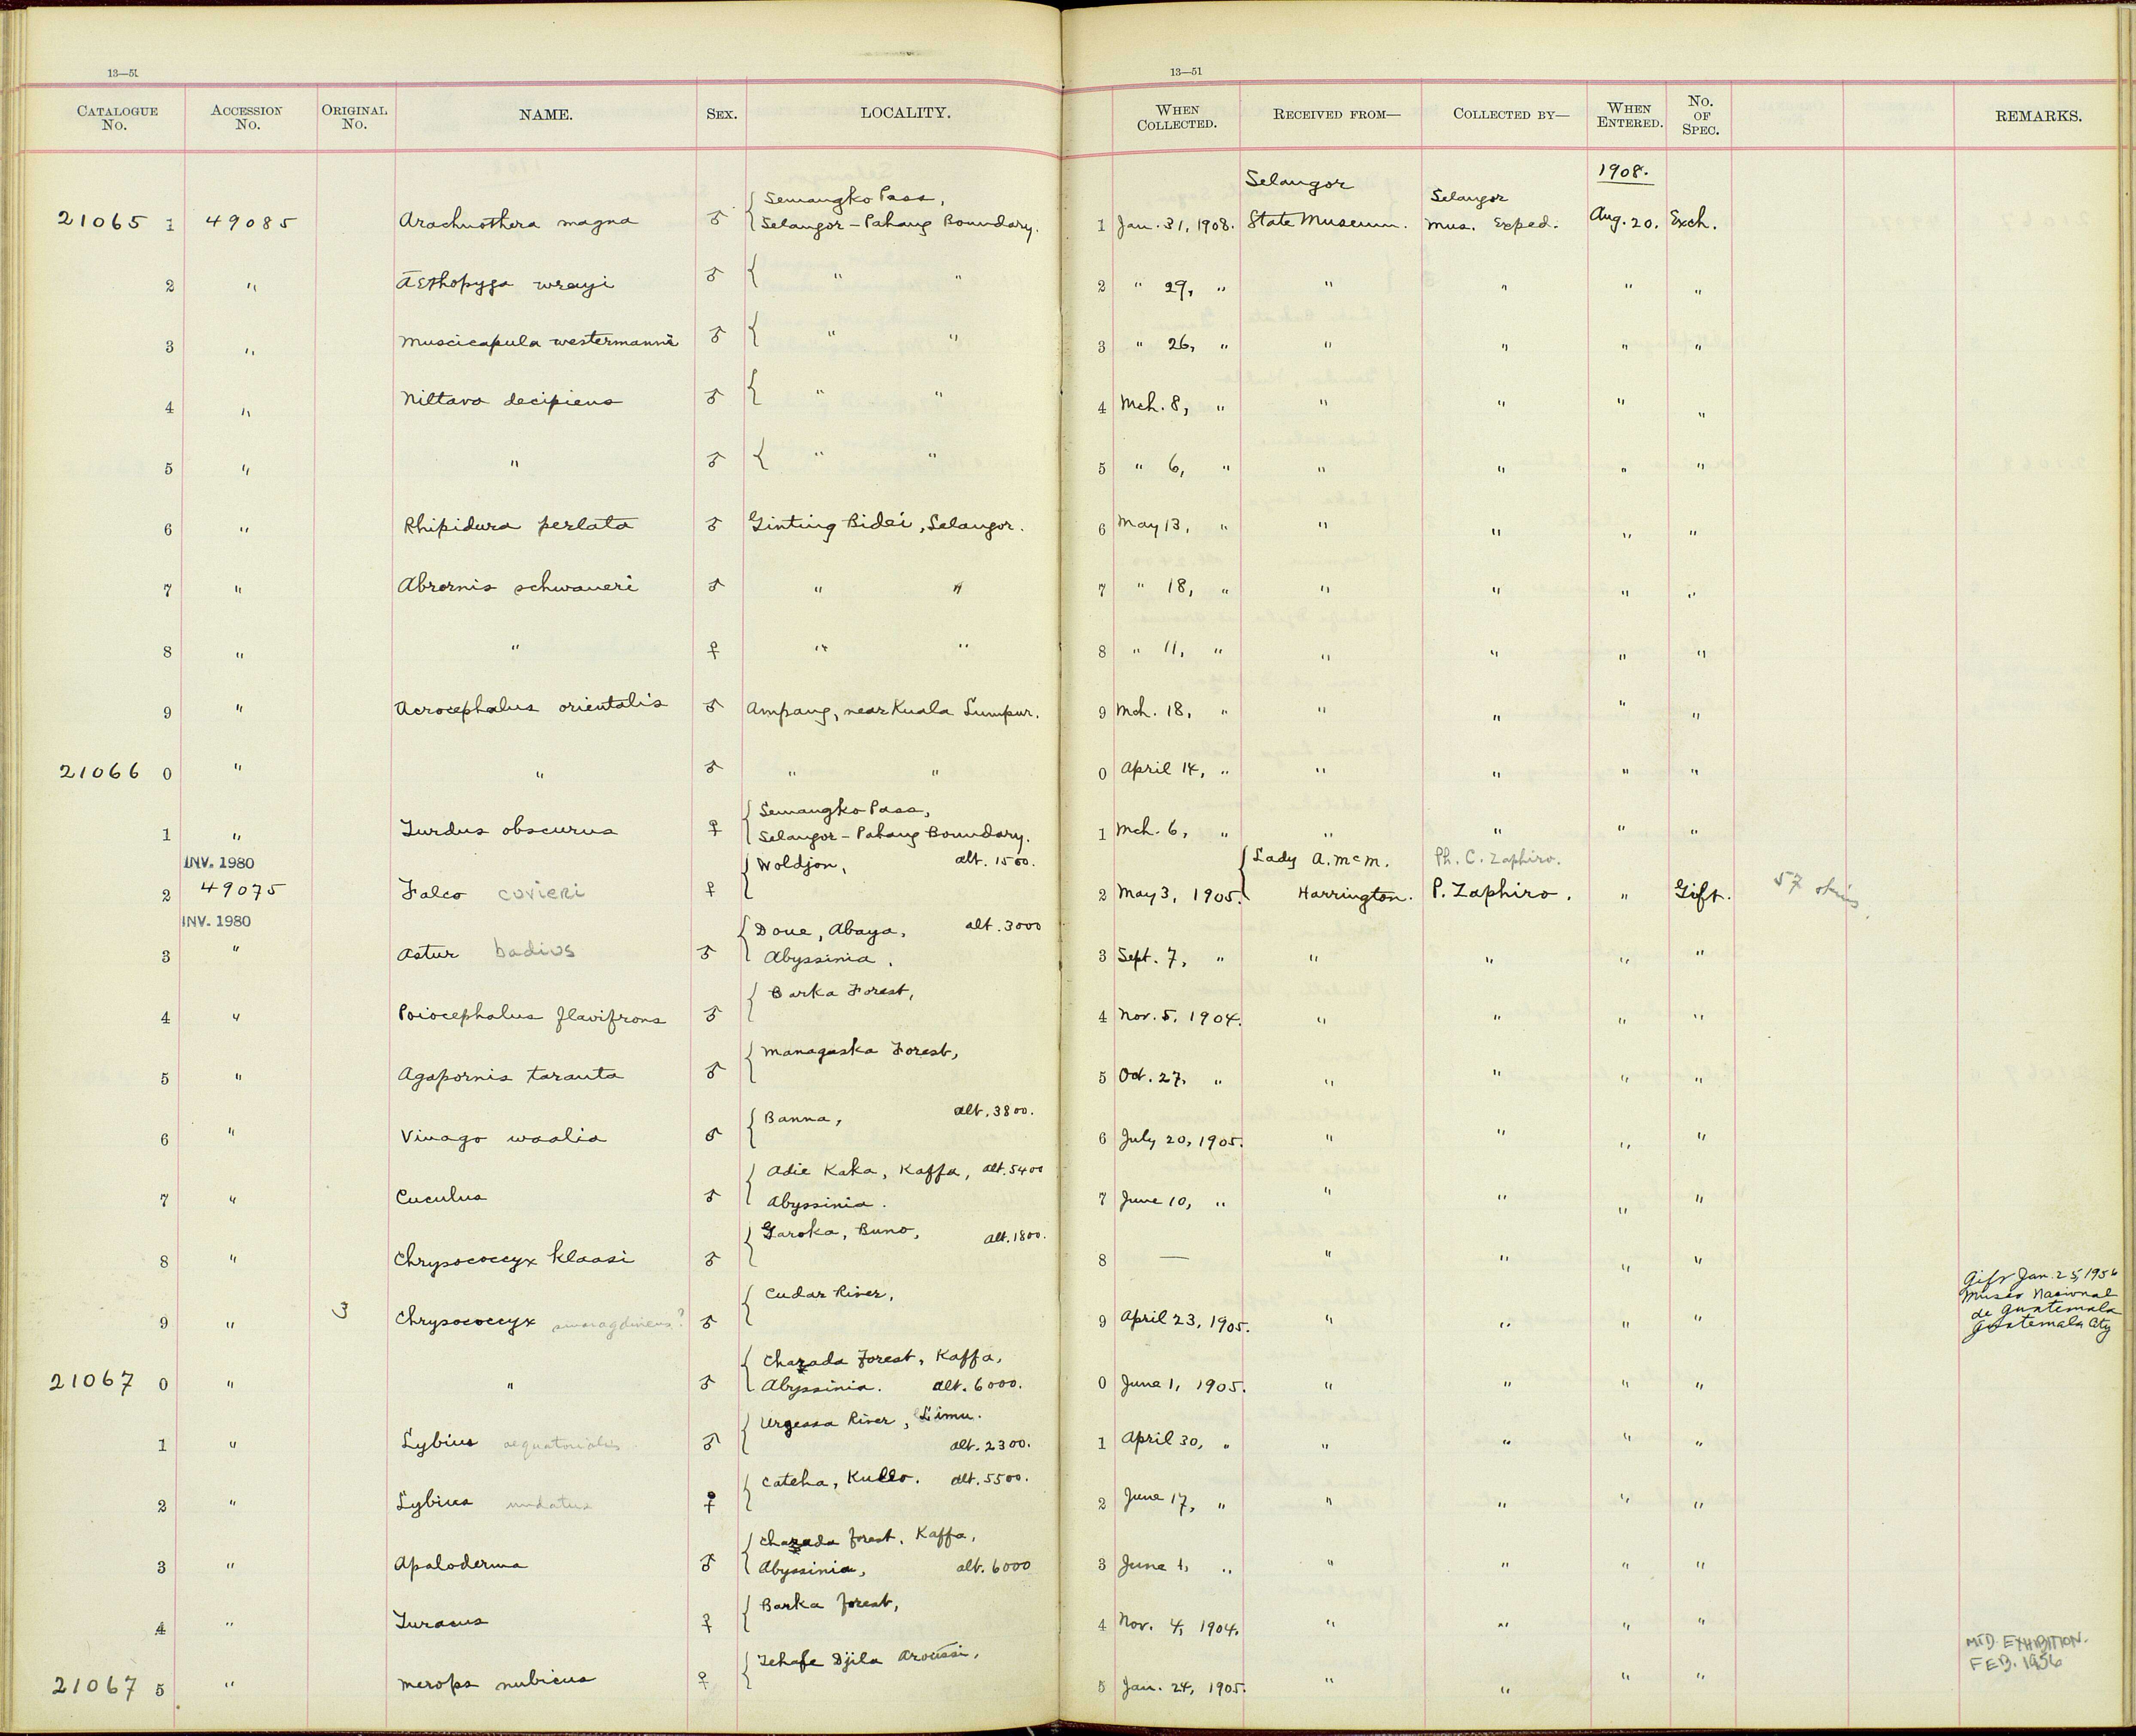 13—51
13—51
CATALOGUE No. ACCESSION No. ORIGINAL No. NAME. SEX. LOCALITY. WHEN COLLECTED. RECEIVED FROM— COLLECTED BY— WHEN ENTERED. No. OF SPEC. REMARKS.
1908.
Semangko Pass, Selangor Selangor
21065 1 49085 Arachnothera magna ♂ { Selangor-Pahang Boundary. 1 Jan. 31, 1908. State Museum. Mus. Exped. Aug. 20. Exch.
2 " Aethopyga wrayi ♂ { " " 2 " 29, " " " " "
3 " Muscicapula westermanni ♂ { " " 3 " 26, " " " " "
4 " Niltava decipiens ♂ { " " 4 Mch. 8, " " " " "
5 " " ♂ { " " 5 " 6, " " " " "
6 " Rhipidura perlata ♂ Ginting Bidei, Selangor. 6 May 13, " " " " "
7 " Abrornis schwaneri ♂ " " 7 " 18, " " " " "
8 " " ♀ " " 8 " 11, " " " " "
9 " Acrocephalus orientalis ♂ Ampang, near Kuala Lumpur. 9 Mch. 18, " " " " "
21066 0 " " ♂ " " 0 April 14, " " " " "
Semangko Pass,
1 " Turdus obscurus ♀ { Selangor-Pahang Boundary. 1 Mch. 6, " " " " "
INV. 1980 Woldjon, alt. 1500. Lady A. McM. Ph. C. Zaphiro.
2 49075 Falco cuvieri ♀ { 2 May 3, 1905. Harrington. P. Zaphiro. " Gift. 57 skins.
INV. 1980 Doue, Abaya, alt. 3000
3 " Astur badius ♂ { Abyssinia. 3 Sept. 7, " " " " "
Barka Forest,
4 " Poiocephalus flavifrons ♂ { 4 Nov. 5, 1904. " " " "
Managaska Forest,
5 " Agapornis taranta ♂ { 5 Oct. 27, " " " " "
Banna, alt. 3800.
6 " Vinago waalia ♂ { 6 July 20, 1905. " " " "
Adie Kaka, Kaffa, alt. 5400
7 " Cuculus ♂ { Abyssinia. 7 June 10, " " " " "
Garoka, Buno, alt. 1800.
8 " Chrysococcyx klaasi ♂ { 8 — " " " "
Cudar River,
9 " 3 Chrysococcyx smaragdineus? ♂ { 9 April 23, 1905. " " " "
Gift Jan. 25, 1956
Museo Nacional
de Guatemala
Guatemala City
Charada Forest, Kaffa,
21067 0 " " ♂ { Abyssinia. alt. 6000. 0 June 1, 1905. " " " "
Urgessa River, Limu.
1 " Lybius aequatorialis ♂ { alt. 2300. 1 April 30, " " " " "
Catcha, Kullo. alt. 5500.
2 " Lybius undatus ♀ { 2 June 17, " " " " "
Charada Forest, Kaffa,
3 " Apaloderma ♂ { Abyssinia, alt. 6000 3 June 1, " " " " "
Barka Forest,
4 " Turacus ♀ { 4 Nov. 4, 1904. " " " "
Djila Aroussi,
21067 5 " Merops nubicus ♀ { 5 Jan. 24, 1905. " " " "
MTD. EXHIBITION.
FEB. 1956